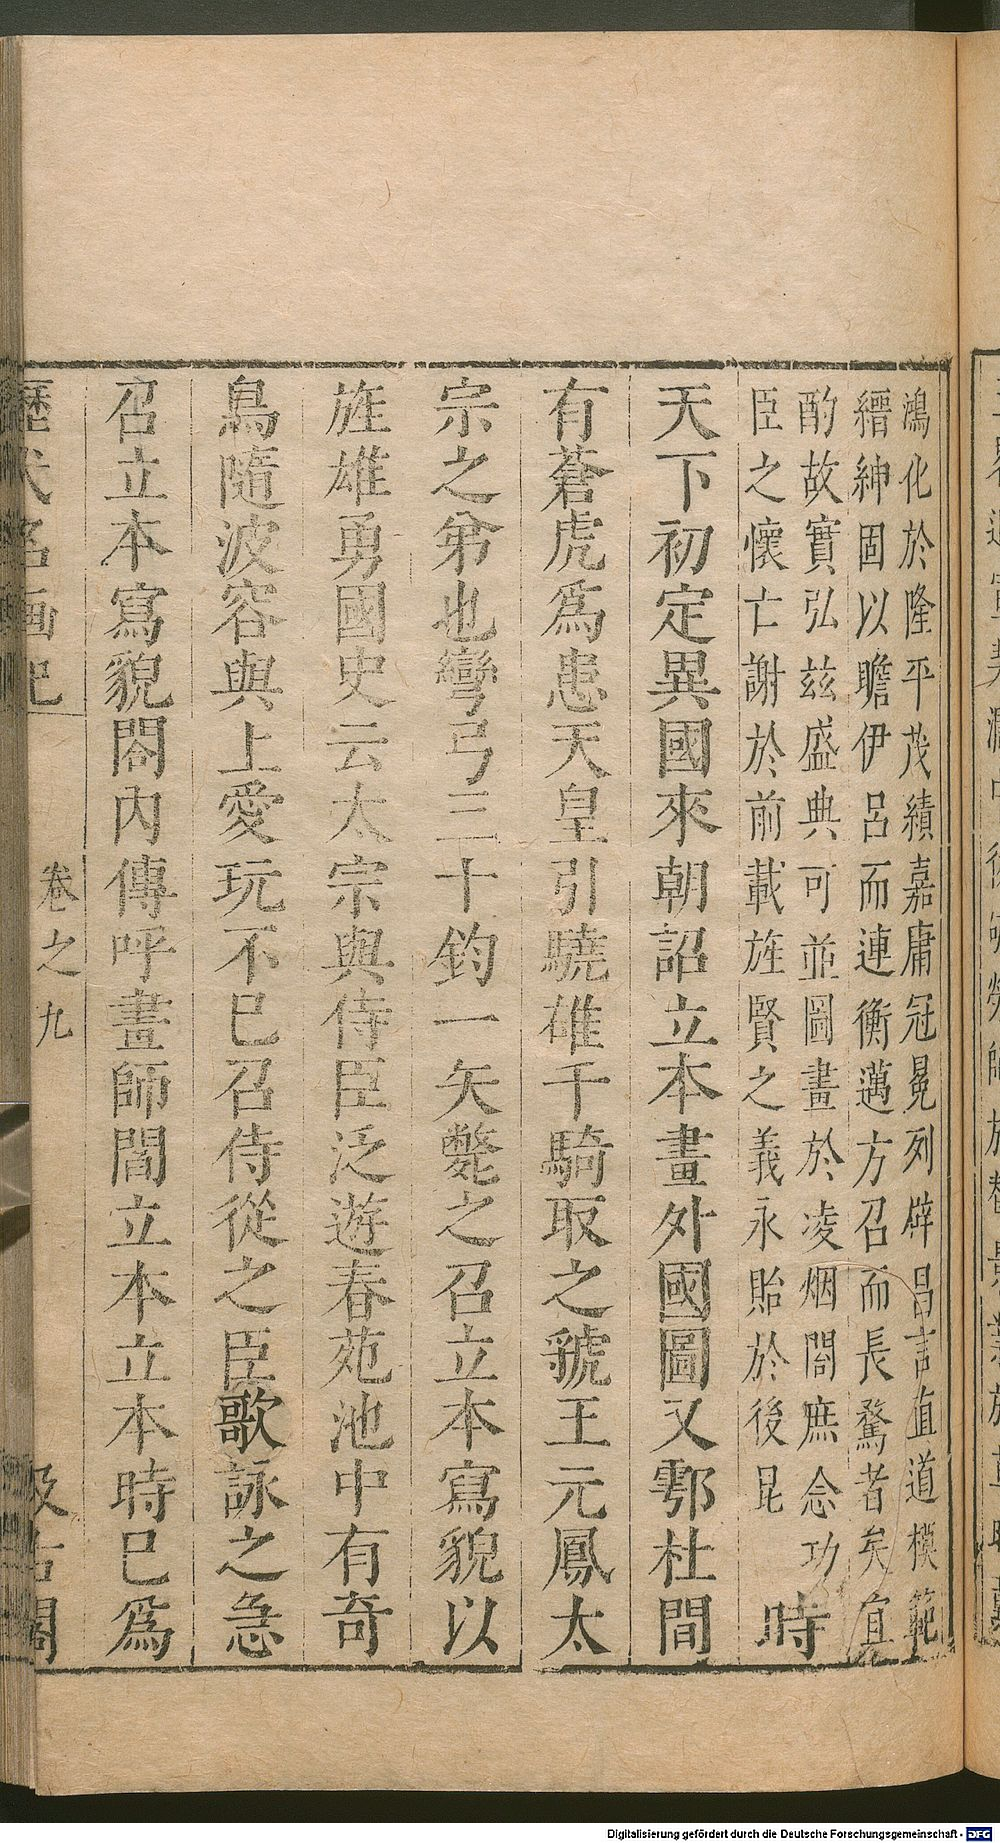 鴻化於隆平茂績嘉庸冠冕列辟昌言直道模範
縉紳固以瞻伊呂而連衡邁方召而長騖者矣宜
酌故實弘茲盛典可並圖畫於凌烟閣庶念功
臣之懷亡謝於前載旌賢之義永貽於後昆
時
天下初定異國來朝詔立本畫外國圖又鄠杜間
有蒼虎爲患天皇引驍雄千騎取之虢王元鳳太
宗之弟也彎弓三十鈞一矢斃之召立本寫貌以
旌雄勇國史云太宗與侍臣泛遊春苑池中有奇
鳥隨波容與上愛玩不已召侍從之臣歌詠之急
召立本寫貌閤內傳呼畫師閻立本立本時已爲
歷代名画記
卷之九
汲古閣
Digitalisierung gefördert durch die Deutsche Forschungsgemeinschaft - DFG